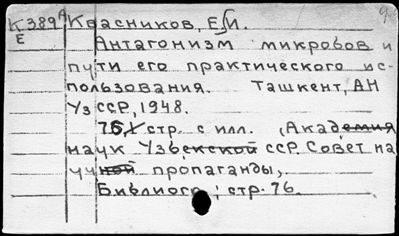 К389 Квасников, Е.И. 9
Е Антагонизм микробов и
пути его практического ис-
пользования. Ташкент, АН
Уз ССР, 1948.
76, стр. с илл. (Академия
наук Узбекской ССР. Совет на
учной пропаганды,
Библиогр: стр. 76.